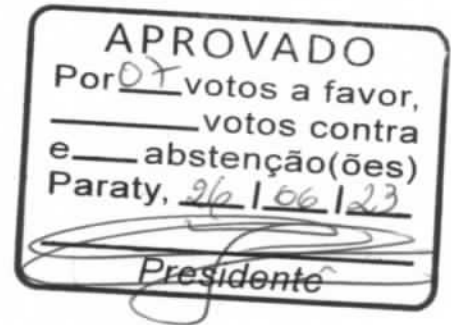 APROVADO
Por 07 votos a favor,
_____ votos contra
e___ abstenção(ões)
Paraty, 26 | 06 | 23
Presidente